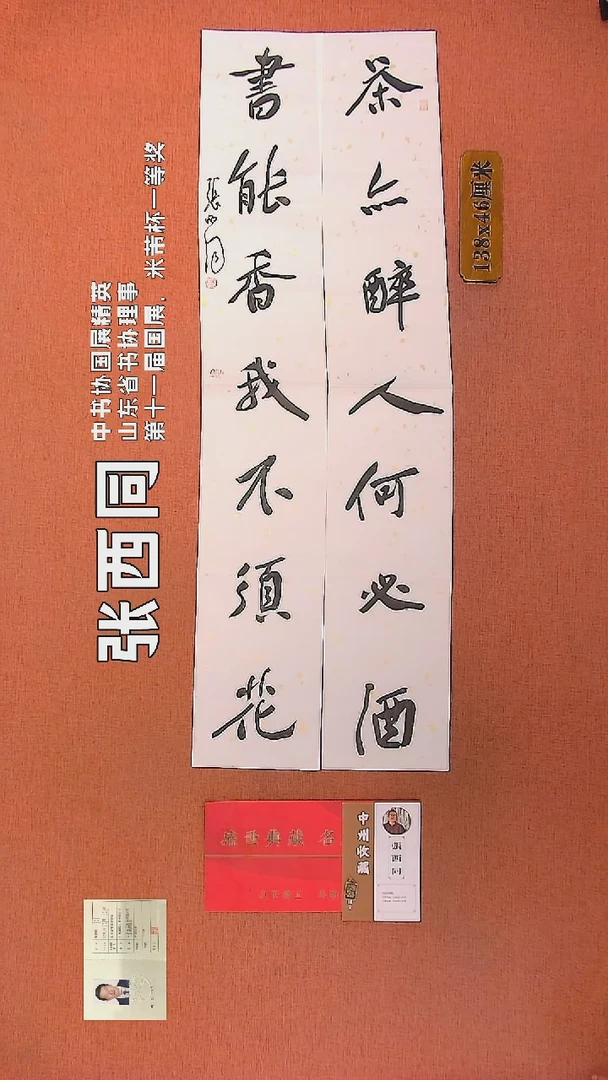 茶亦醉人何必酒
書能香我不須花
張西同
138x46厘米
张西同
中书协国展精英
山东省书协理事
第十一届国展、米芾杯一等奖
中州收藏
張西同